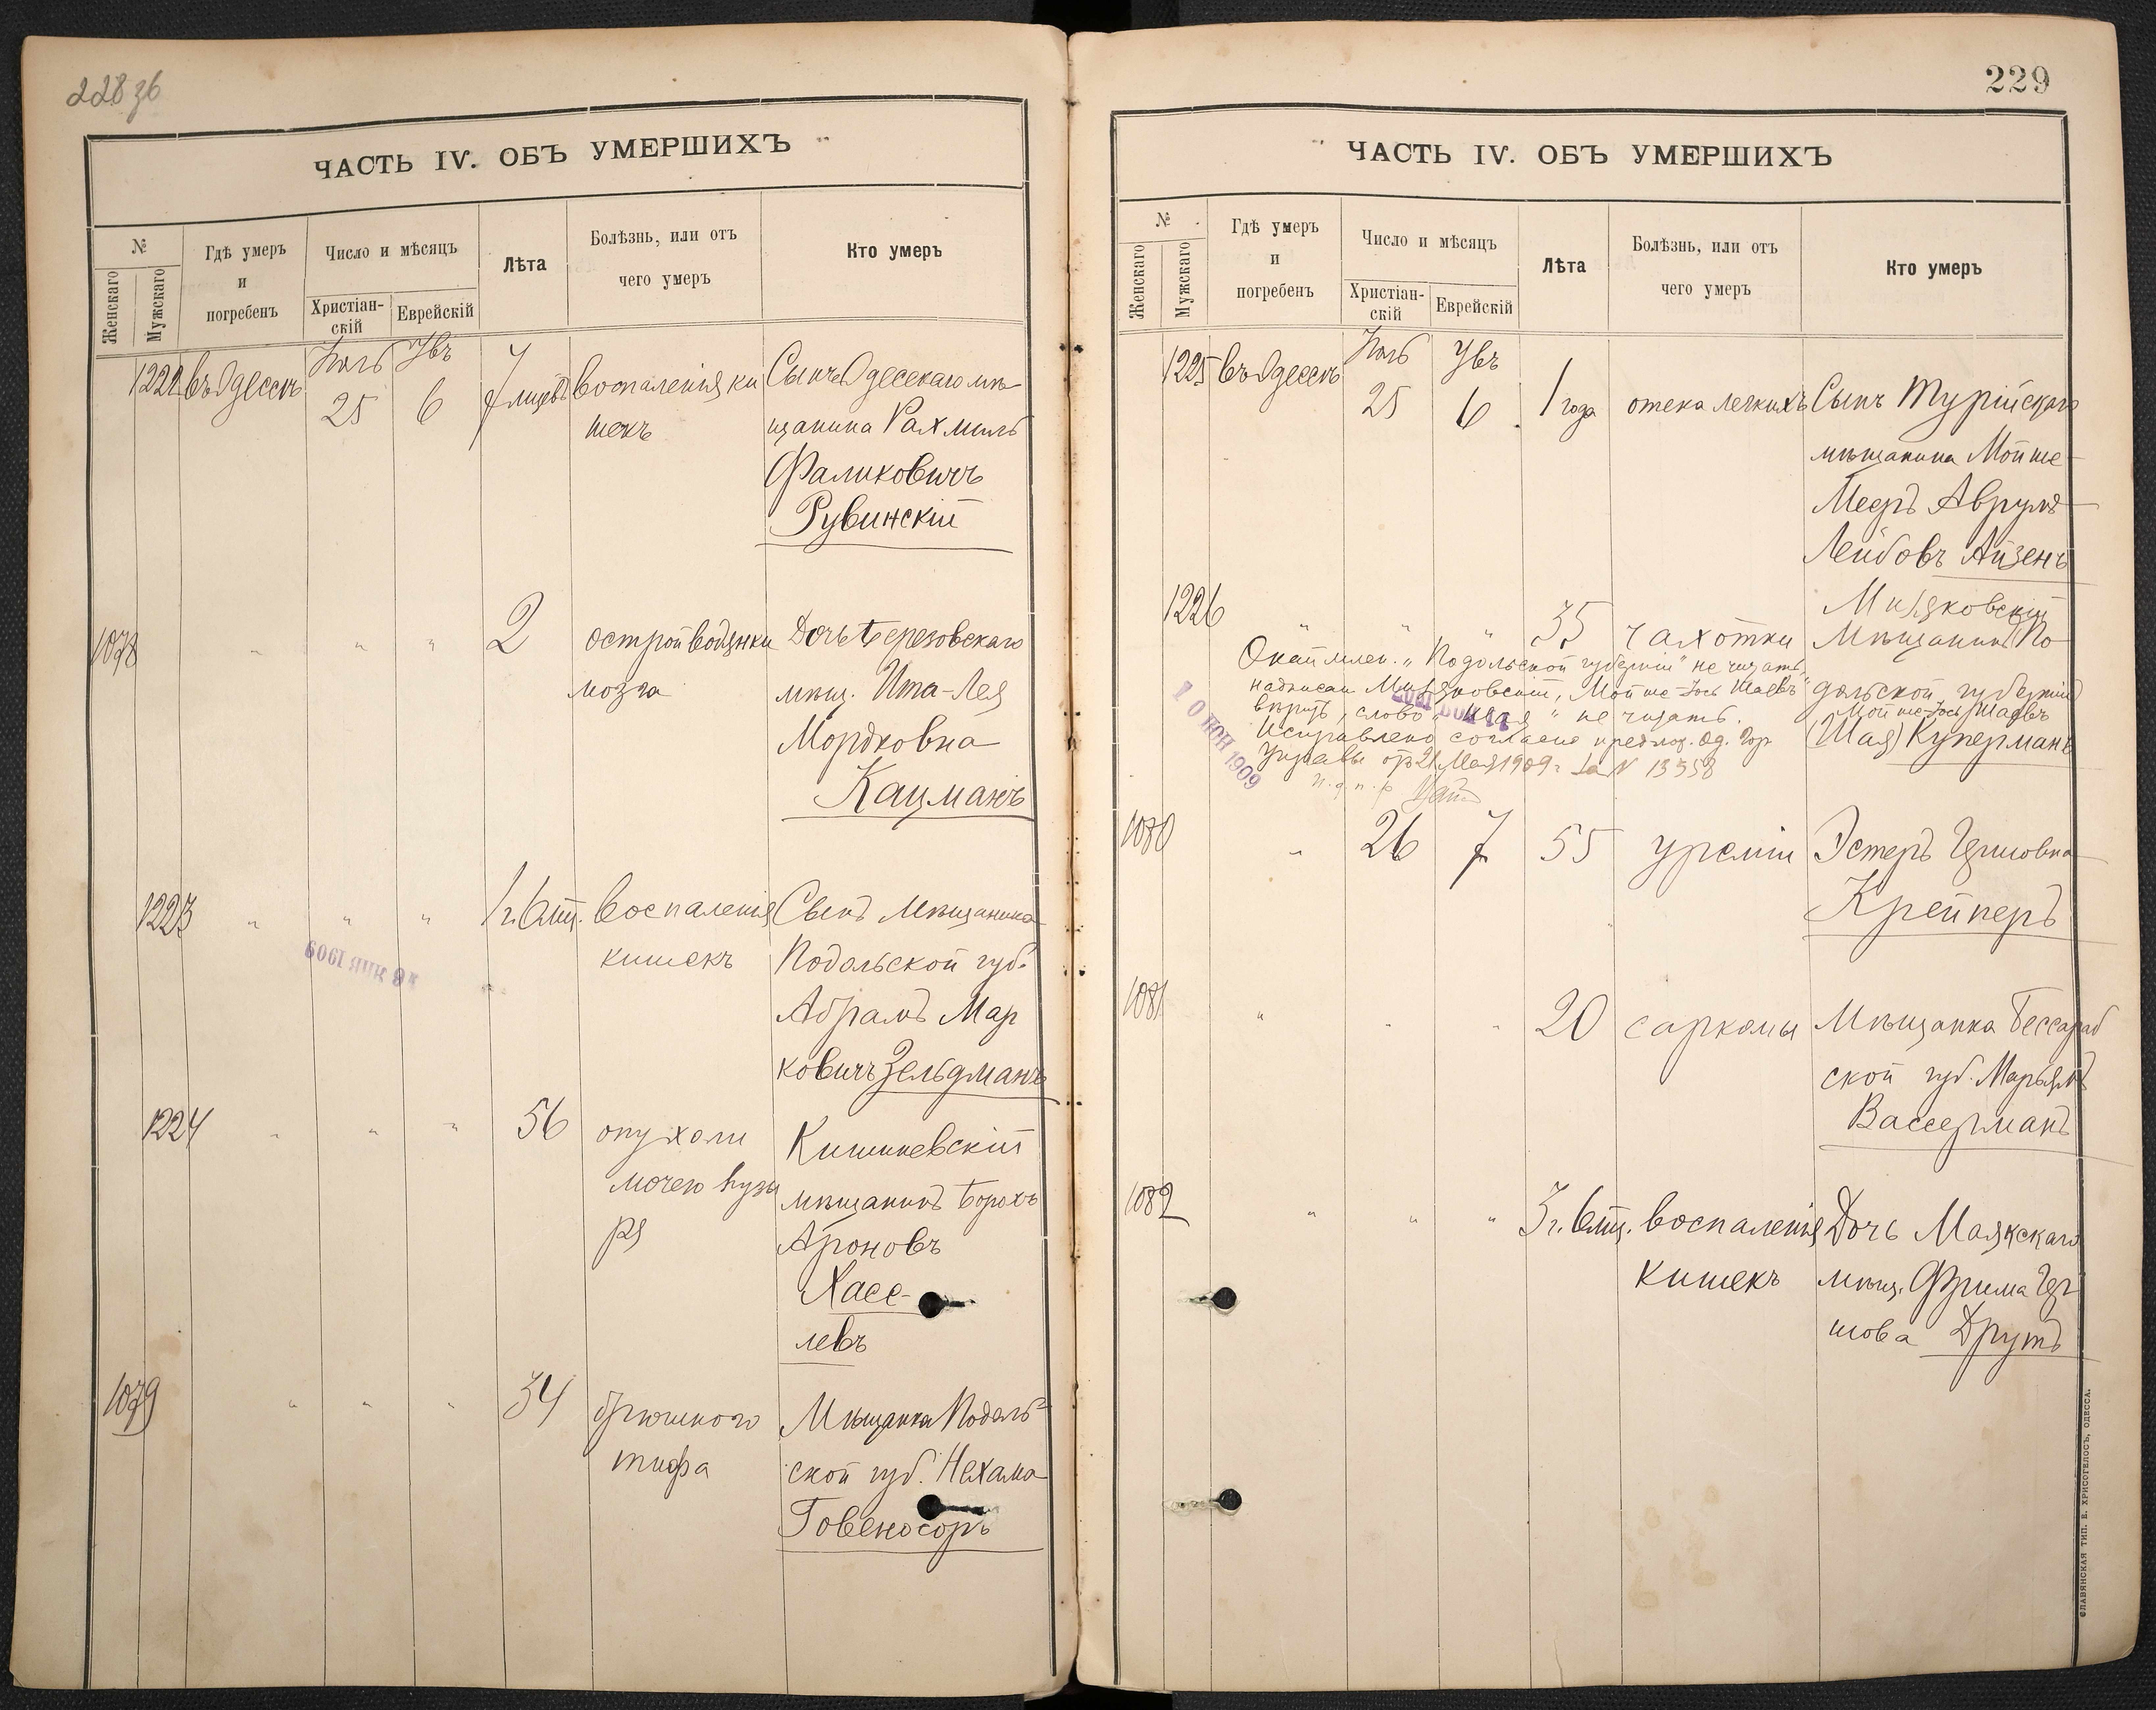 228 об
ЧАСТЬ IV. ОБЪ УМЕРШИХЪ
№
Женскаго
Мужскаго
Гдѣ умеръ
и
погребенъ
Число и мѣсяцъ
Христіан-
скій
Еврейскій
Лѣта
Болѣзнь, или отъ
чего умеръ
Кто умеръ
1222 въ Одессѣ Ноль Увъ
25 6 7 мцевъ воспаленія ки
шекъ
Сынъ Одесскаго мѣ-
щанина Рахмиль
Фаликовичъ
Рувинскій
1078 " " " 2 острой водянки
мозга
Дочь Березовскаго
мѣщ. Ита-Лея
Мордковна
Кацманъ
1223 " " " 1 г. 6 мц. воспаленія
кишекъ
Сынъ мѣщанина
Подольской губ.
Абрамъ Мар
ковичъ Зельдманъ
8 ЯНВ 1909
1224 " " " 56 опухоли
мочего пузы
ря
Кишиневскій
мѣщанинъ Борохъ
Ароновъ
Хасе-
левъ
1079 " " " 34 брюшного
тифа
Мѣщанка Подоль-
ской губ. Нехама
Говеносоръ
229
ЧАСТЬ IV. ОБЪ УМЕРШИХЪ
№
Женскаго
Мужскаго
Гдѣ умеръ
и
погребенъ
Число и мѣсяцъ
Христіан-
скій
Еврейскій
Лѣта
Болѣзнь, или отъ
чего умеръ
Кто умеръ
1225 въ Одессѣ Ноль Увъ
25 6 1 года отека легкихъ
Сынъ Турійскаго
мѣщанина Мойше-
Мееръ Аврумъ-
Лейбовъ Айзенъ
1226 " " " 35 чахотки
Миньковскій
Мѣщанинъ По
дольской губерніи
Мойше-Іось Шаевъ
(Шая) Куперманъ
"Подольской губерніи" не читать,
надписан Миньковскій, Мойше-Іось Шаевъ"
вѣрить, слово "Шая" не читать.
Исправлено согласно предлож. Од. Гор
Управы отъ 21 Мая 1909 г за № 13558
10 ІЮН 1909
1080 " 26 7 55 уреміи Эстеръ Гершовна
Крейперъ
1081 " " " 20 саркомы Мѣщанка Бессараб
ской губ. Марьямъ
Вассерманъ
1082 " " " 3 г. 6 мц. воспаленія
кишекъ
Дочь Маякскаго
мѣщ. Фрима Гер
шова Друтъ
СЛАВЯНСКАЯ ТИП. Е. ХРИСОГЕЛОСЪ, ОДЕССА.